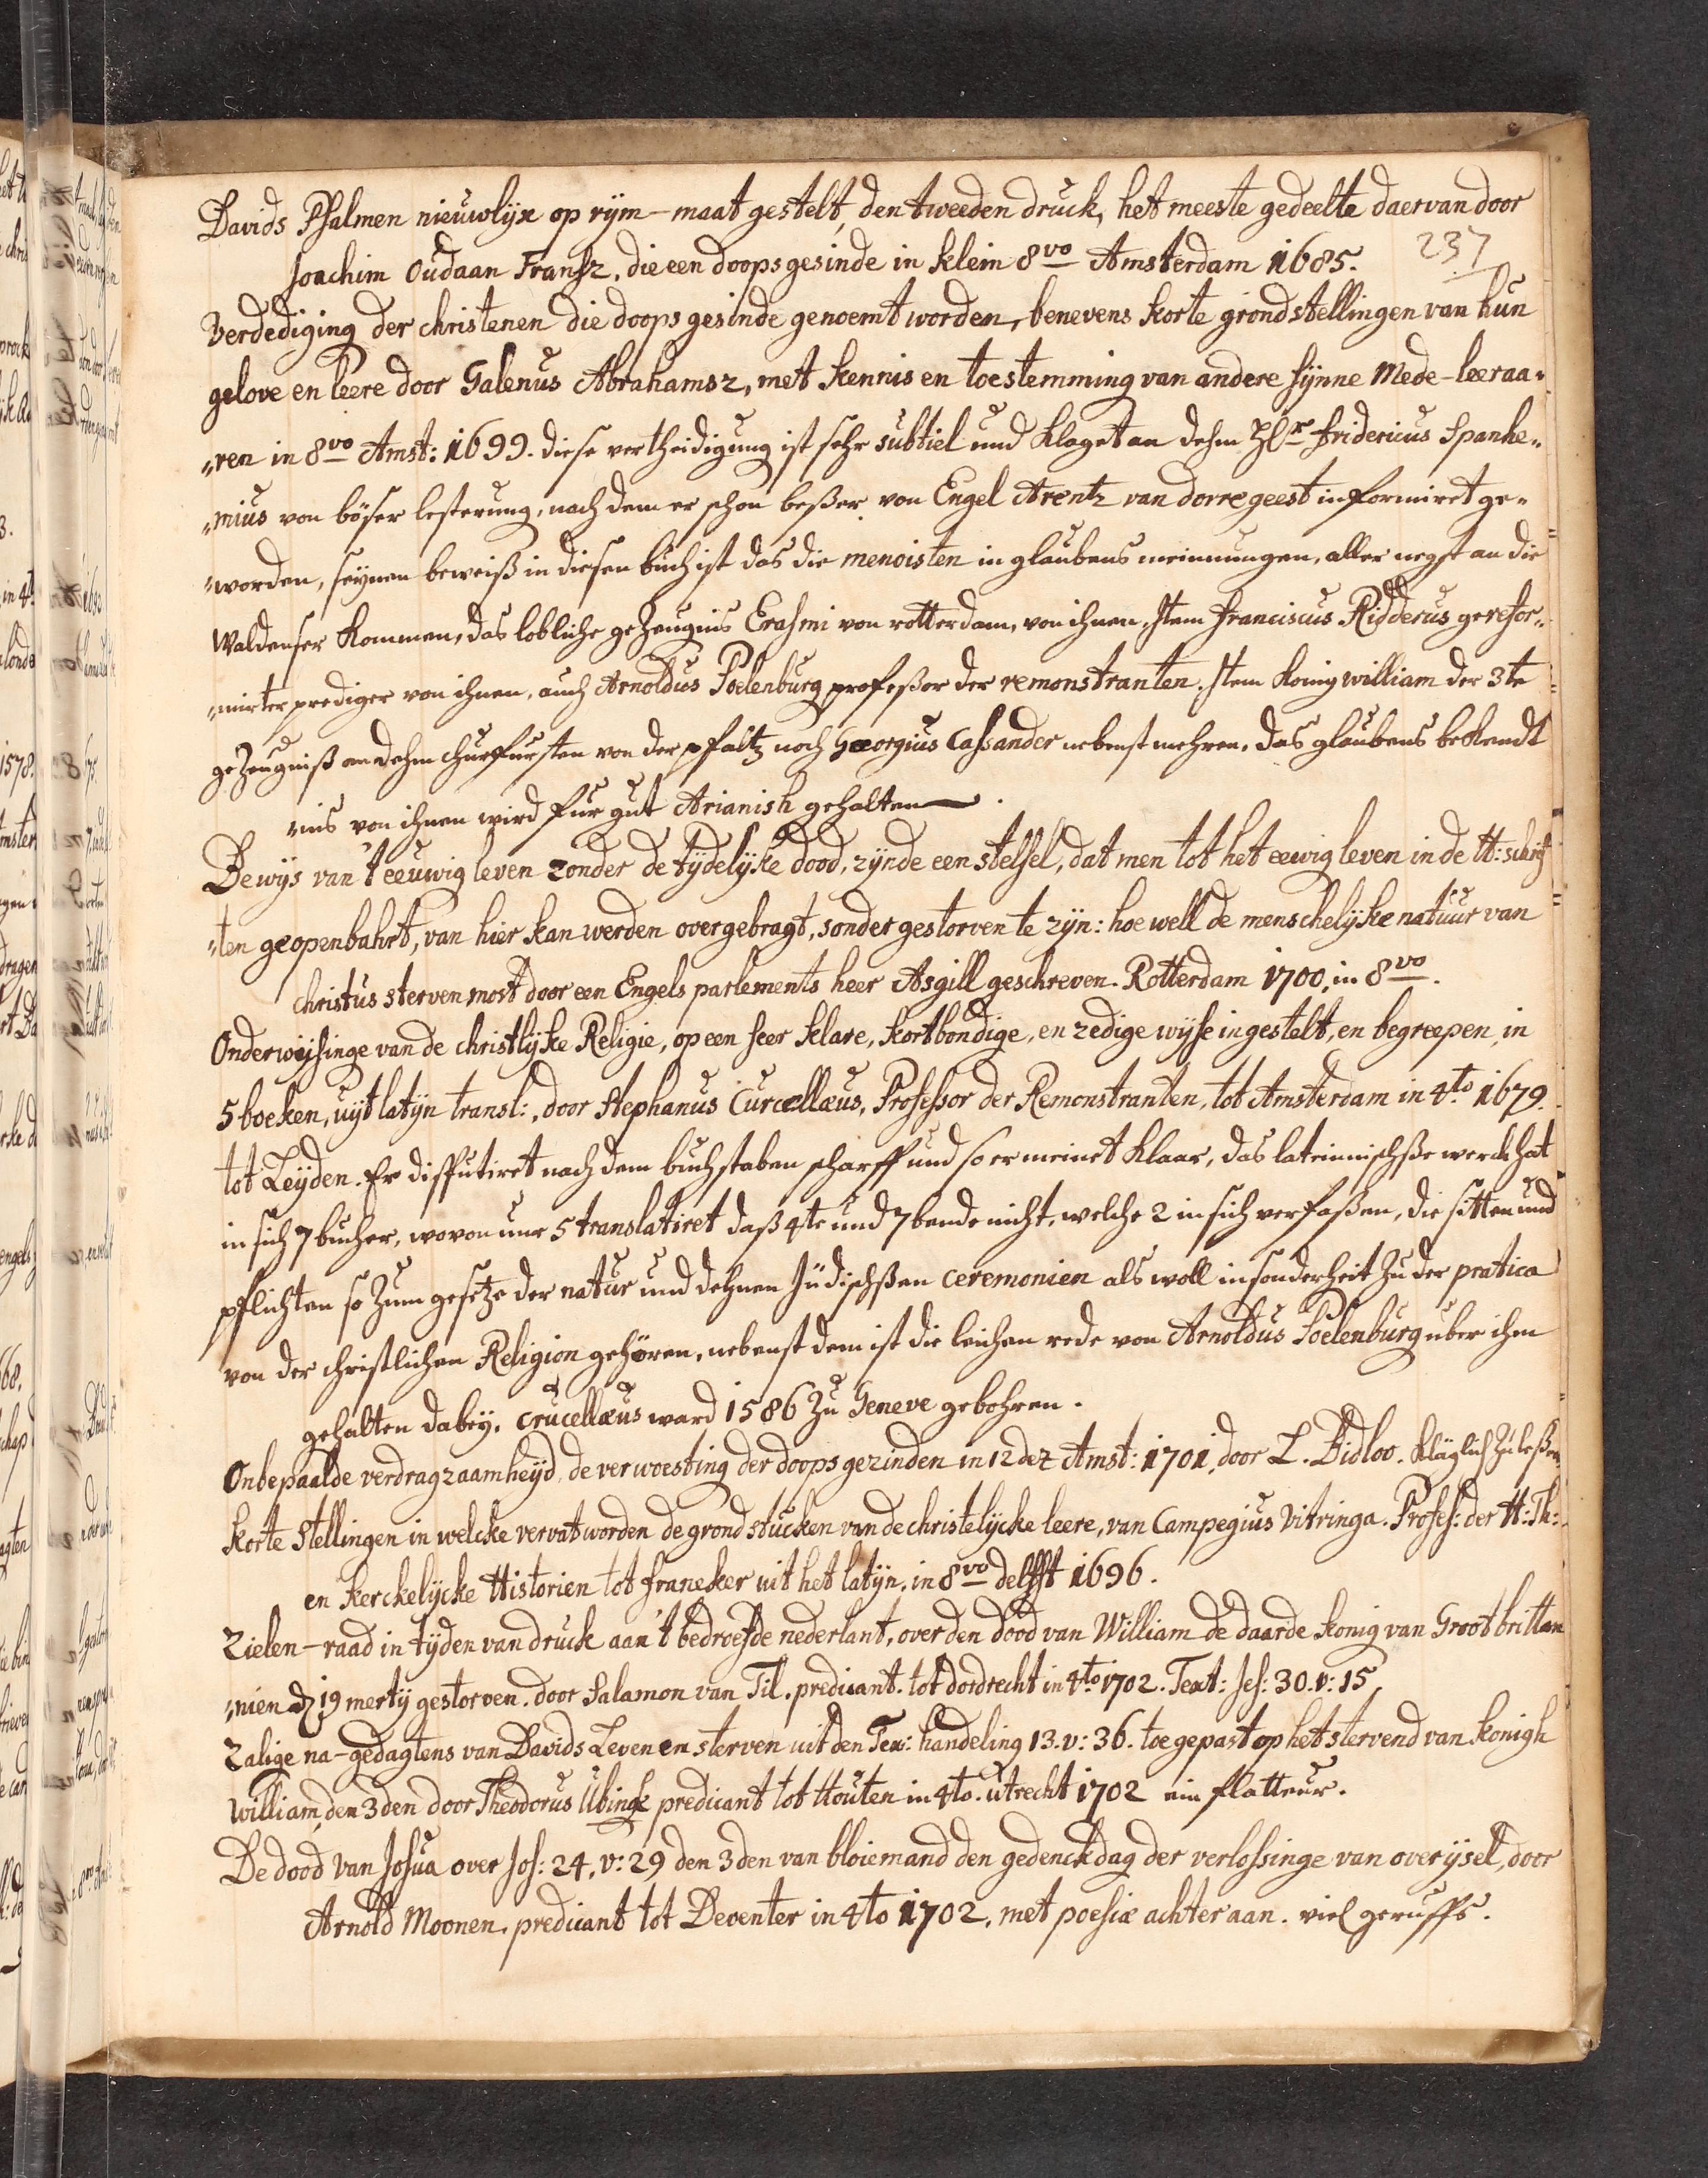 Davids Psalmen nieuwlijx op rijm-maat gestelt, den tweeden druck, het meeste gedeelte daervan door
Joachim Oudaan Fransz. die een doopsgesinde in klein 8vo Amsterdam 1685.
237
Verdediging der christenen die doops gesinde genoemt worden, benevens korte grondstellingen van hun
gelove en leere door Galenus Abrahamsz, met kennis en toestemming van andere sijnne Mede-leeraa„
„ren in 8vo Amst: 1699. diese vertheidigung ist sehr subtiel und klaget an dehm Hr fridericus Spanhe„
„mius von böser lesterung, nach dem er schon beßer von Engel Arentz van dorregeest informiret ge„
„worden, seijnen beweiß in diesen buch ist das die menoisten in glaubens meinnungen, aller negst an die
Waldenser kommen, das lobliche gezeugnis Erasmi von rotterdam, von ihnen, Item Franciscus Ridderus gerefor„
„mirter prediger von ihnen, auch Arnoldus Poelenburg profeßor der remonstranten. Item Konig william der 3te
gezeugniß an dehm churfursten von der pfaltz noch Georgius Cassander nebenst mehren, das glaubens bekendt
„nis von ihnen wird fur gut Arianish gehalten.
Bewijs van 't eeuwig leven zonder de tijdelijke dood, zijnde een stelsel, dat men tot het eewig leven in de H: schrif
„ten geopenbahrt, van hier kan werden overgebragt, sonder gestorven te zijn: hoe well de menschelijke natuur van
christus sterven most door een Engels parlements heer Asgill geschreven. Rotterdam 1700, in 8vo.
Onderwijsinge van de christlijke Religie, op een seer klare, kortbondige, en zedige wijse ingestelt, en begreepen, in
5 boeken, uijt latijn transl:, door Stephanus Curcellæus, Professor der Remonstranten, tot Amsterdam in 4to 1679.
tot Leijden. Er disputiret nach dem buchstaben scharff und so er meinet klaar, das lateinnischße werck hat
in sich 7 bucher, wovon nur 5 translatiret daß 4te und 7 bende nicht, welche 2 in sich verfaßen, die sitten und
pflichten so zum gesetze der natur und dehnen Jüdischßen ceremonien als woll insonderheit zu der pratica
von der christlichen Religion gehören, nebenst dem ist die leichen rede von Arnoldus Poelenburg uber ihm
gehalten dabey. Crucellæus ward 1586 zu Geneve gebohren.
Onbepaalde verdragzaamheijd, de verwoesting der doopsgezinden in 12dez Amst: 1701, door L. Bidloo. kläglich zu leßen.
Korte Stellingen in welcke vervat worden de grondstucken van de christelijcke leere, van Campegius Vitringa. Profes: der H: Th:
en kerckelijcke Historien tot franeker uit het latijn. in 8vo delfft 1696.
Zielen-raad in tijden van druck aan 't bedroefde nederlant, over den dood van William de daarde konig van Groot brittan
„nien 19 mertij gestorven. door Salamon van Til. predicant. tot dordrecht in 4to 1702. Text: Jes: 30. v: 15.
Zalige na-gedagtens van Davids Leven en sterven uit den Tex: handeling 13. v: 36. toegepast op het stervend van konigh
William, den 3den door Theodorus Ubingk predicant tot Houten in 4to. utrecht 1702 ein flatteur.
De dood van Josua over Jos: 24, v: 29 den 3den van bloiemand den gedenckdag der verlossinge van overijsel, door
Arnold Moonen. predicant tot Deventer in 4to 1702. met poesiæ achter aan. viel geruffs.